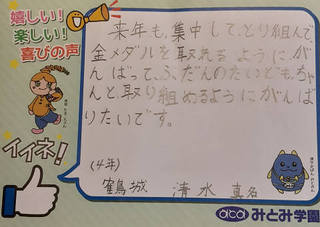 嬉しい!
楽しい!
喜びの声
来年も、集中してとり組んで、
金メダルを取れるようにが
んばって、ふだんのたいども、ちゃ
んと取り組めるようにがんば
りたいです。
(4年)
鶴城 清水 真名
イイネ!
みとみ学園